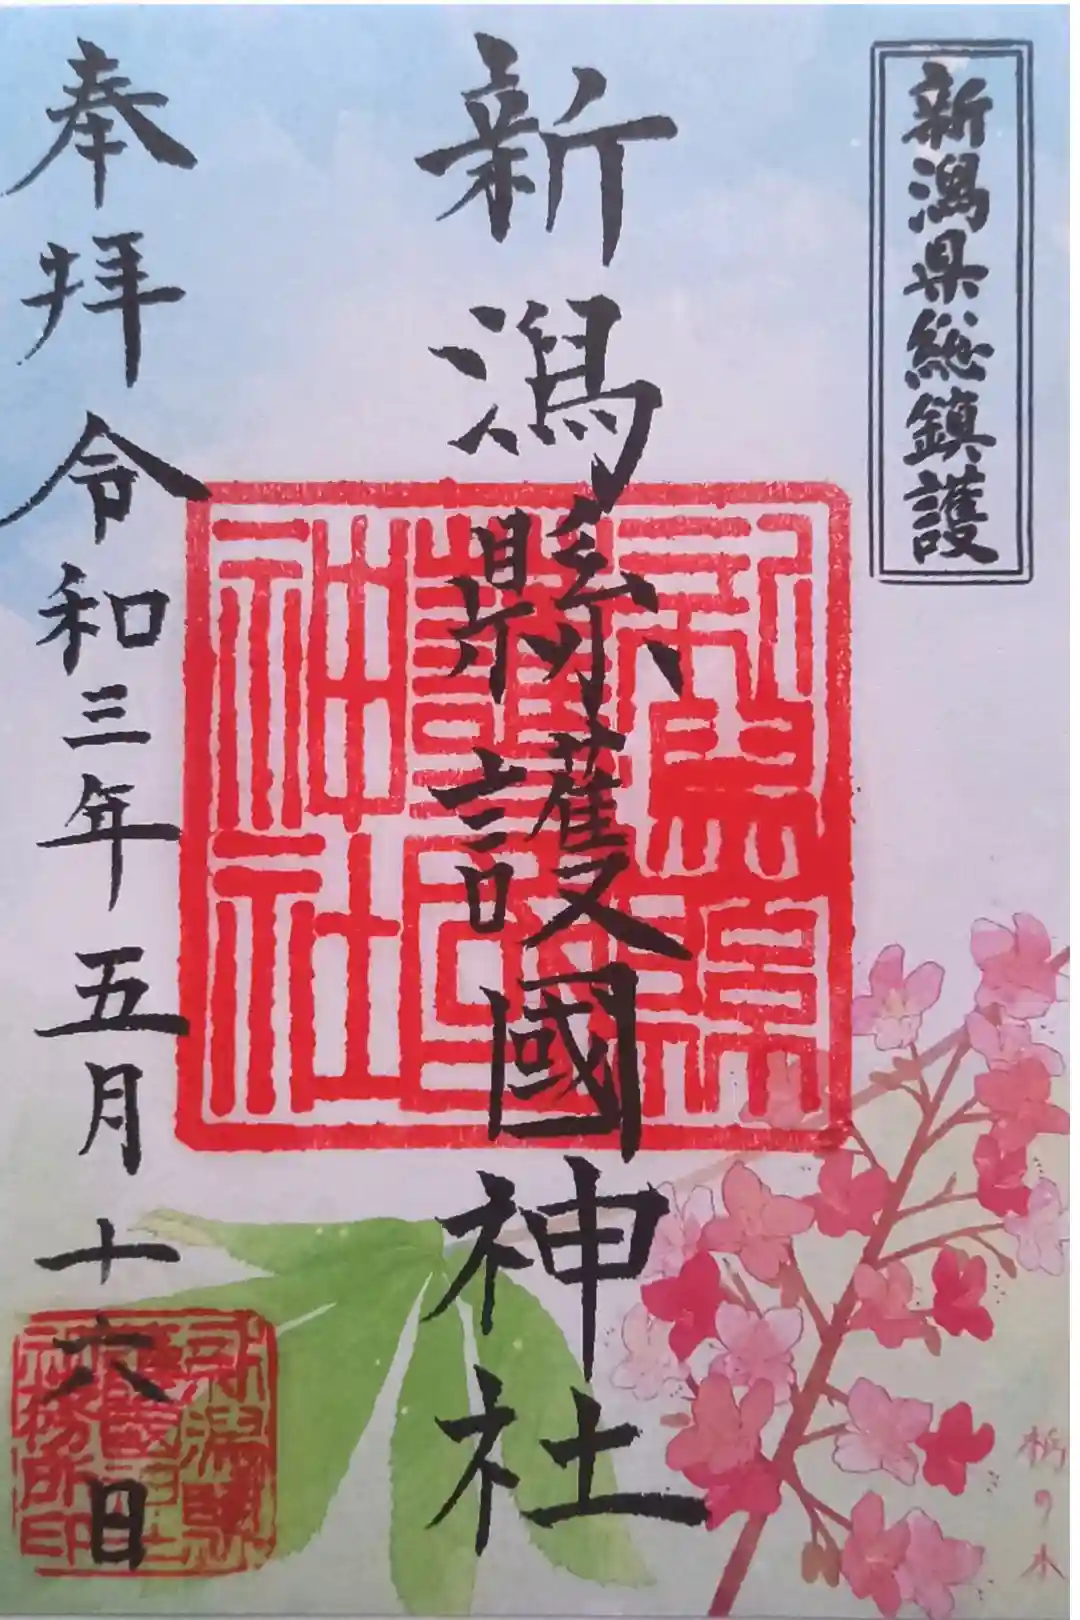 新潟県総鎮護
新潟縣護國神社
奉拝
令和三年五月十六日
新潟縣
護國
神社
新潟縣
護國神社
社務所印
栃の木